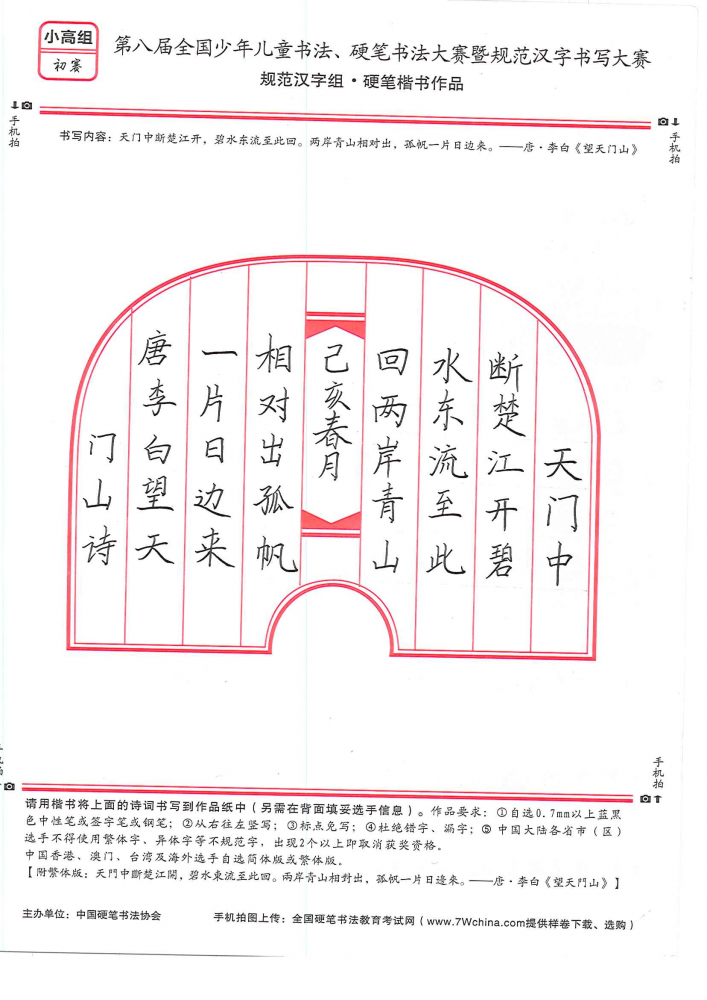 小高组
初赛
第八届全国少年儿童书法、硬笔书法大赛暨规范汉字书写大赛
规范汉字组·硬笔楷书作品
手机拍
手机拍
书写内容：天门中断楚江开，碧水东流至此回。两岸青山相对出，孤帆一片日边来。——唐·李白《望天门山》
天门中
断楚江开碧
水东流至此
回两岸青山
己亥春月
相对出孤帆
一片日边来
唐李白望天
门山诗
手机拍
请用楷书将上面的诗词书写到作品纸中（另需在背面填妥选手信息）。作品要求：①自选0.7mm以上蓝黑
色中性笔或签字笔或钢笔；②从右往左竖写；③标点免写；④杜绝错字、漏字；⑤ 中国大陆各省市（区）
选手不得使用繁体字、异体字等不规范字，出现2个以上即取消获奖资格。
中国香港、澳门、台湾及海外选手自选简体版或繁体版。
【附繁体版：天門中斷楚江開，碧水東流至此回。兩岸青山相對出，孤帆一片日邊來。——唐·李白《望天門山》】
主办单位：中国硬笔书法协会
手机拍图上传：全国硬笔书法教育考试网（www.7Wchina.com提供样卷下载、选购）